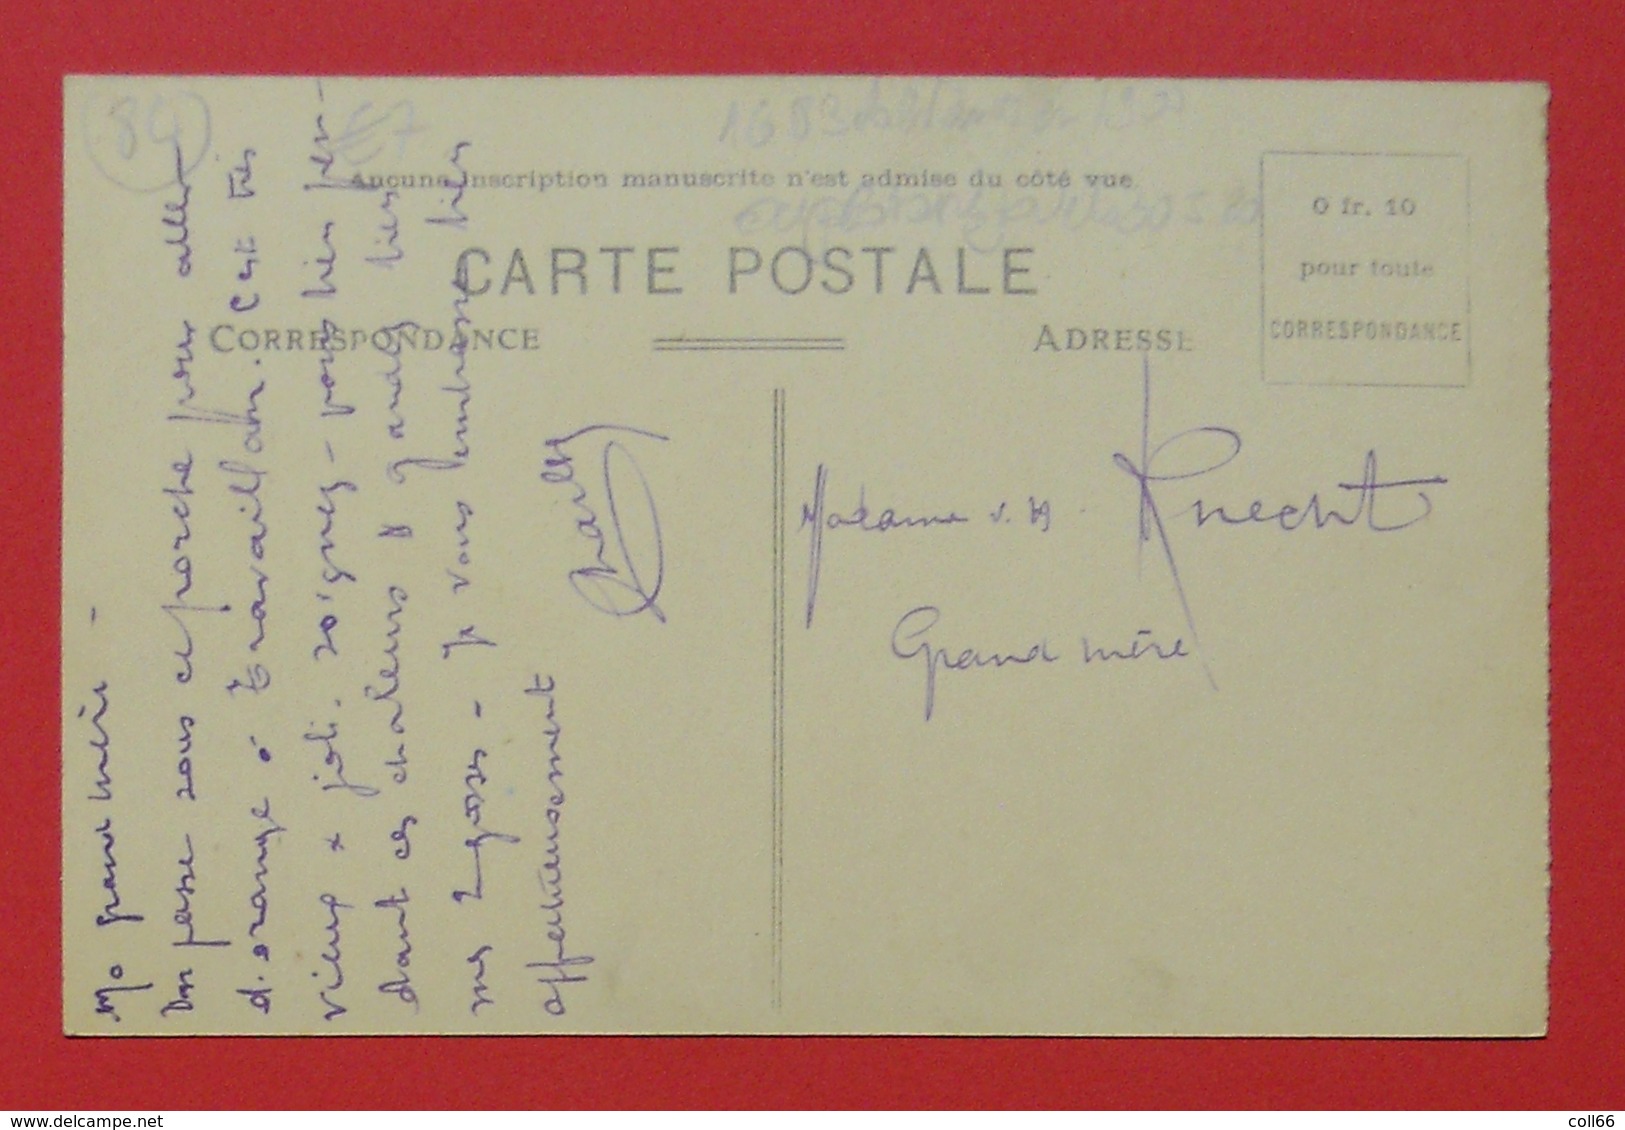 84
€7
Aucune inscription manuscrite n'est admise du côté vue
CARTE POSTALE
CORRESPONDANCE
ADRESSE
0 fr. 10
pour toute
CORRESPONDANCE
Ma grand mère -
On passe sous ce porche pour aller
d'orange à Travaillan. C'est très
vieux & joli. soignez-vous bien pen-
dant ces chaleurs & gardez bien
mes 2 gosses - Je vous embrasse bien
affectueusement
Madame V. M. Knecht
Grand mère
delcampe.net
coll66